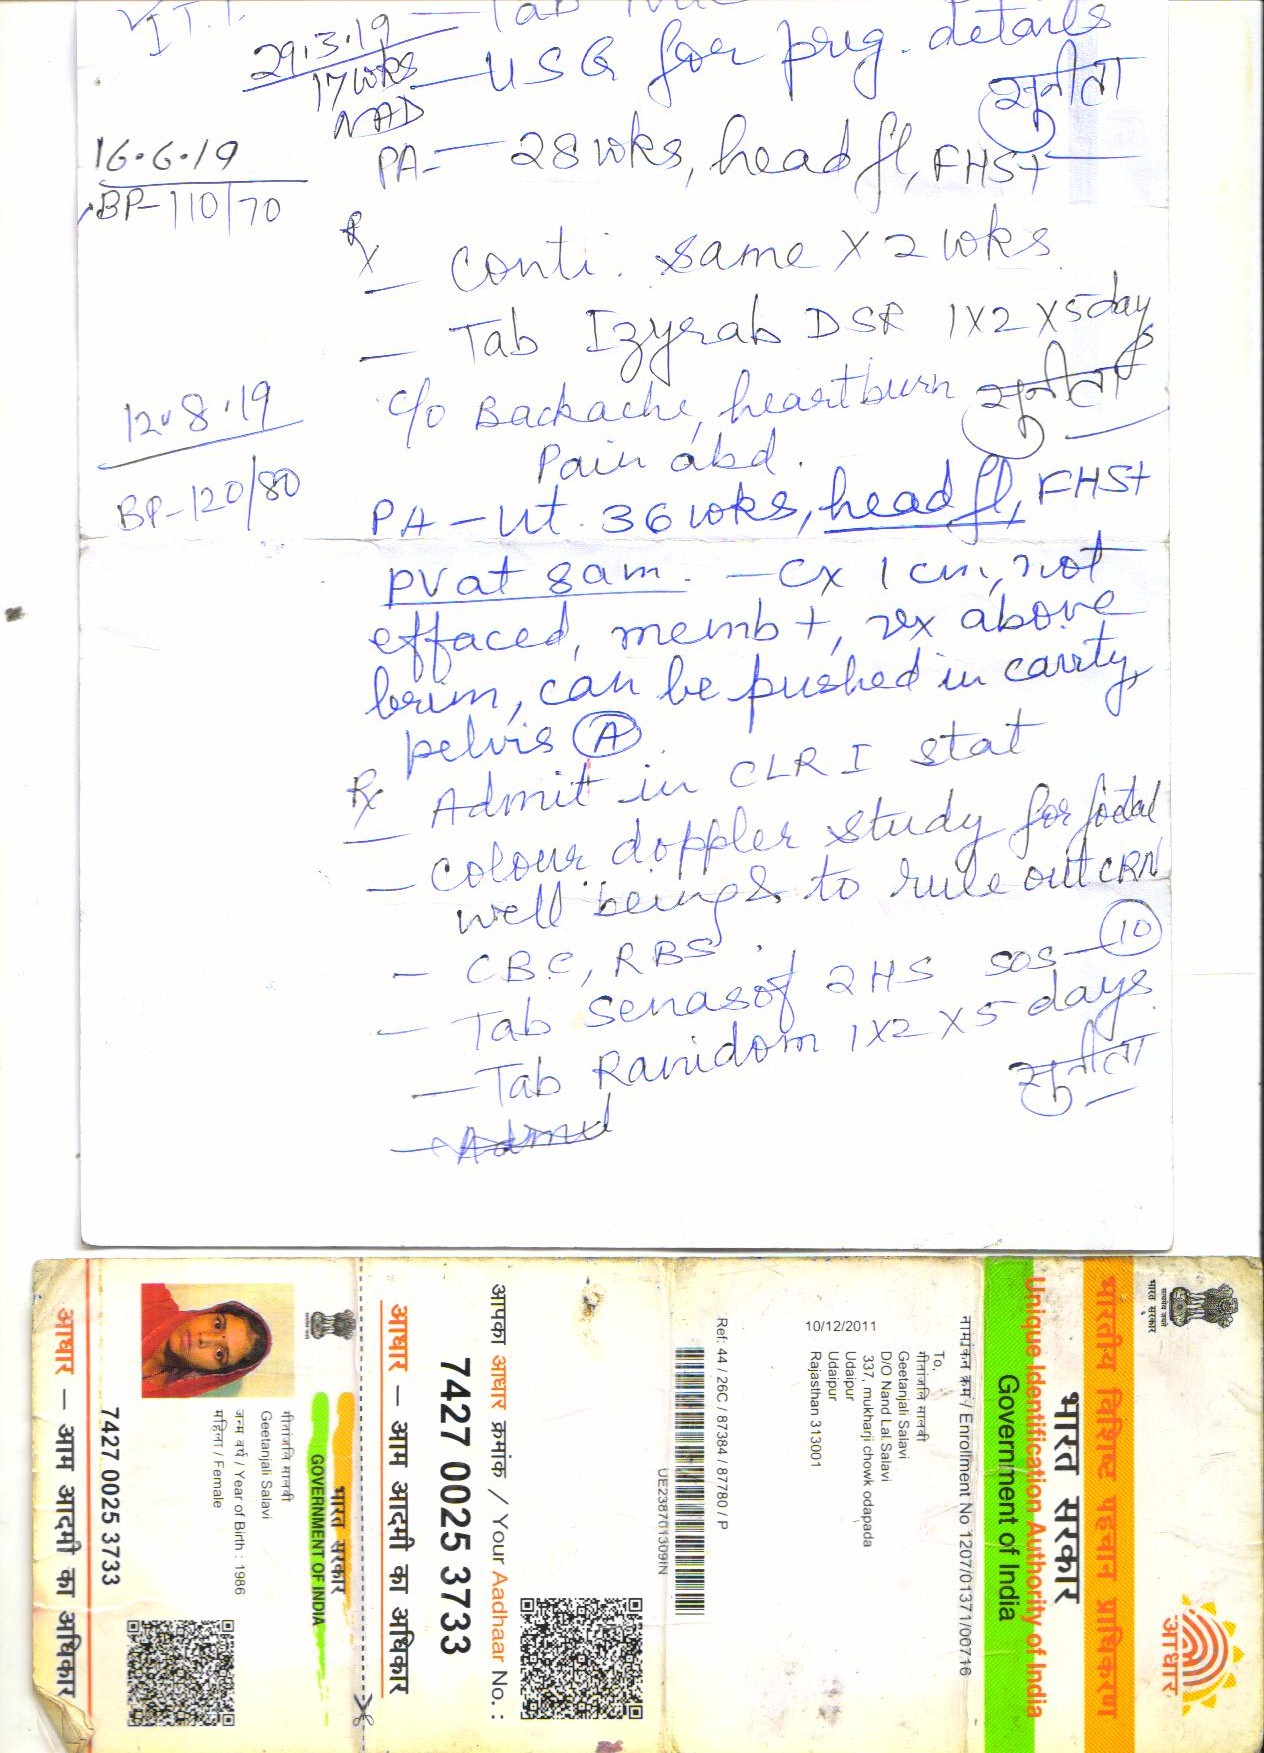 29.3.19 — Tab
17 wks — USG for preg. details
NAD
सुनीता
16.6.19
PA - — 28 wks, head fl, FHS+
BP - 110/70
Rx
— Conti. same X 2 wks
— Tab Izyrab DSR 1X2 X 5 days
सुनीता
12.8.19
c/o Backache, heartburn
Pain abd.
BP - 120/80
PA - Ut. 36 wks, head fl, FHS+
PV at 8 am. - Cx 1 cm, not
effaced, memb +, vx above
brim, can be pushed in cavity,
pelvis (A)
Rx
— Admit in CLR I stat
— Colour doppler study for foetal
well being & to rule out CRN
— CBC, RBS.
— Tab Senasof 2 HS SOS — (10)
— Tab Ranidom 1X2 X 5 days
सुनीता
सत्यमेव जयते
भारत सरकार
आधार
भारतीय विशिष्ट पहचान प्राधिकरण
भारत सरकार
Unique Identification Authority of India
Government of India
नामांकन क्रम / Enrollment No 1207/01371/00716
To,
गीतांजलि सालवी
Geetanjali Salavi
D/O Nand Lal Salavi
337, mukharji chowk odapada
Udaipur
Udaipur
Rajasthan 313001
10/12/2011
Ref: 44 / 26C / 87384 / 87780 / P
UE238701309IN
आपका आधार क्रमांक / Your Aadhaar No. :
7427 0025 3733
आधार – आम आदमी का अधिकार
भारत सरकार
GOVERNMENT OF INDIA
गीतांजलि सालवी
Geetanjali Salavi
जन्म वर्ष / Year of Birth : 1986
महिला / Female
7427 0025 3733
आधार – आम आदमी का अधिकार